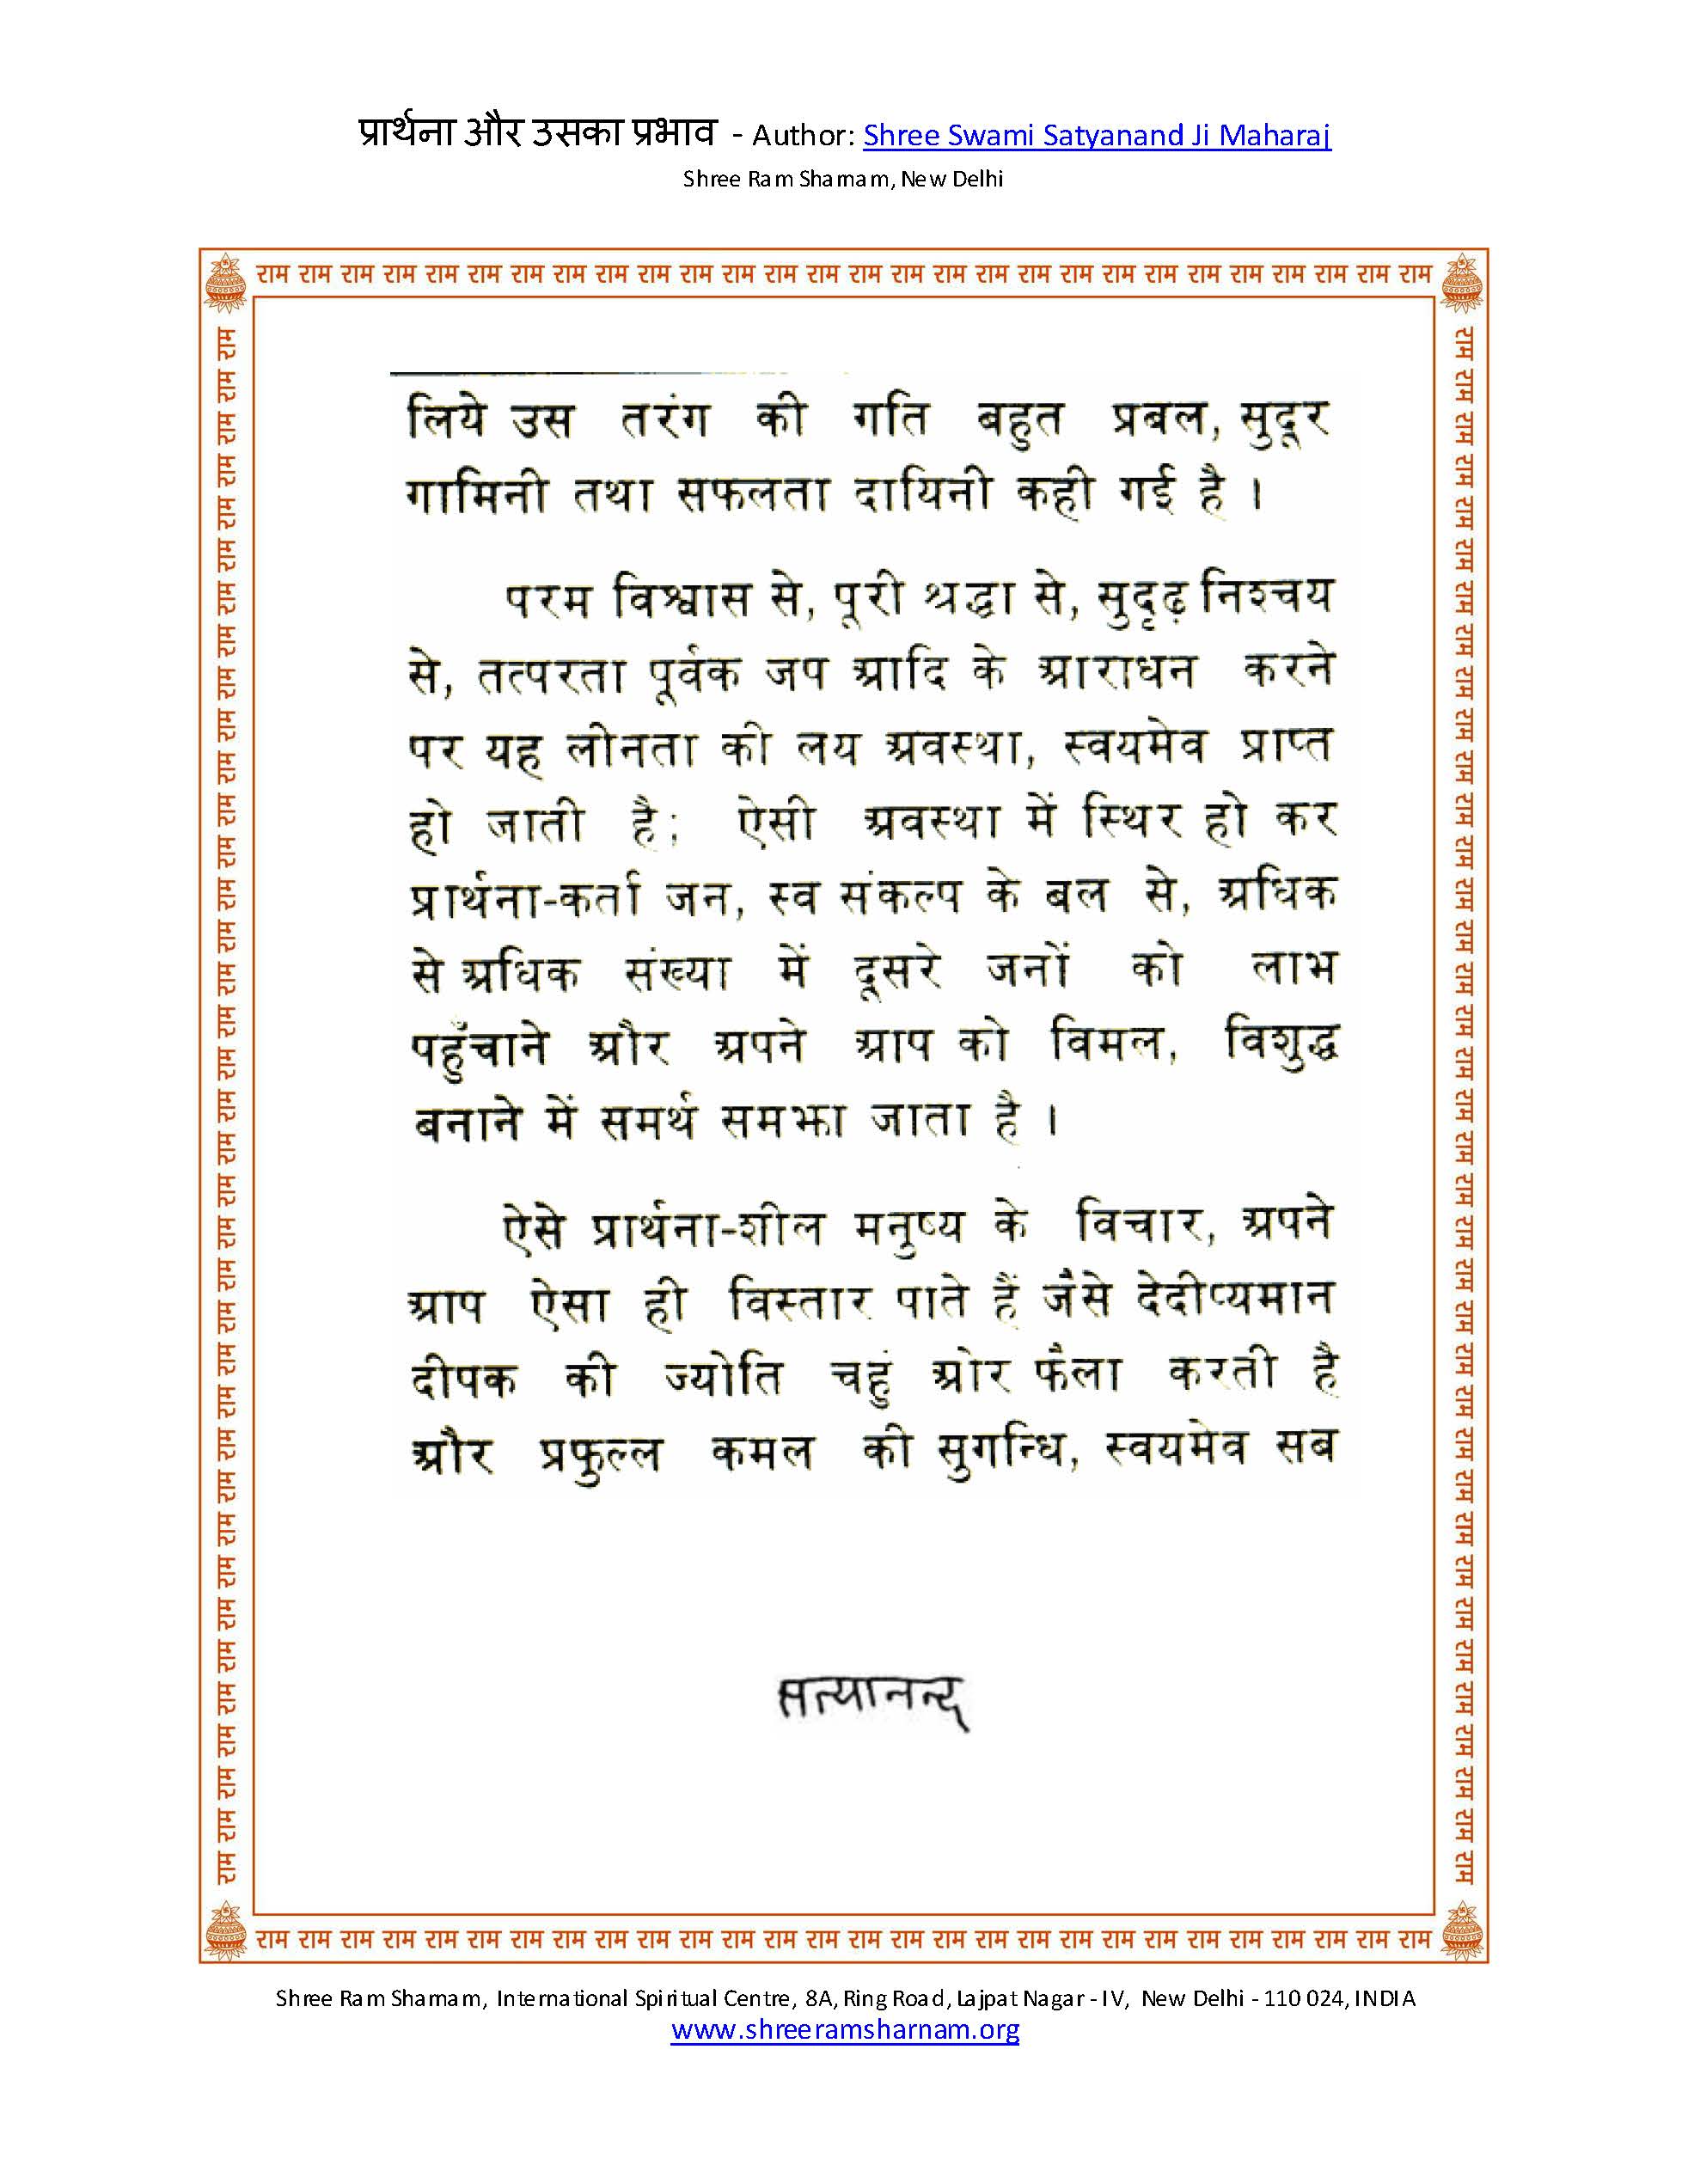 प्रार्थना और उसका प्रभाव - Author: Shree Swami Satyanand Ji Maharaj
Shree Ram Sharnam, New Delhi
राम राम राम राम राम राम राम राम राम राम राम राम राम राम राम राम राम राम राम राम राम राम राम राम राम राम राम राम
लिये उस तरंग की गति बहुत प्रबल, सुदूर
गामिनी तथा सफलता दायिनी कही गई है ।
परम विश्वास से, पूरी श्रद्धा से, सुदृढ़ निश्चय
से, तत्परता पूर्वक जप आदि के आराधन करने
पर यह लीनता की लय अवस्था, स्वयमेव प्राप्त
हो जाती है; ऐसी अवस्था में स्थिर हो कर
प्रार्थना-कर्ता जन, स्व संकल्प के बल से, अधिक
से अधिक संख्या में दूसरे जनों को लाभ
पहुँचाने और अपने आप को विमल, विशुद्ध
बनाने में समर्थ समझा जाता है ।
ऐसे प्रार्थना-शील मनुष्य के विचार, अपने
आप ऐसा ही विस्तार पाते हैं जैसे देदीप्यमान
दीपक की ज्योति चहुं ओर फैला करती है
और प्रफुल्ल कमल की सुगन्धि, स्वयमेव सब
सत्यानन्द
राम राम राम राम राम राम राम राम राम राम राम राम राम राम राम राम राम राम राम राम राम राम राम राम राम राम राम राम
राम राम राम राम राम राम राम राम राम राम राम राम राम राम राम राम राम राम राम राम राम राम राम राम राम राम राम राम राम राम राम राम राम राम राम राम राम
राम राम राम राम राम राम राम राम राम राम राम राम राम राम राम राम राम राम राम राम राम राम राम राम राम राम राम राम राम राम राम राम राम राम राम राम राम
Shree Ram Sharnam, International Spiritual Centre, 8A, Ring Road, Lajpat Nagar - IV, New Delhi - 110 024, INDIA
www.shreeramsharnam.org